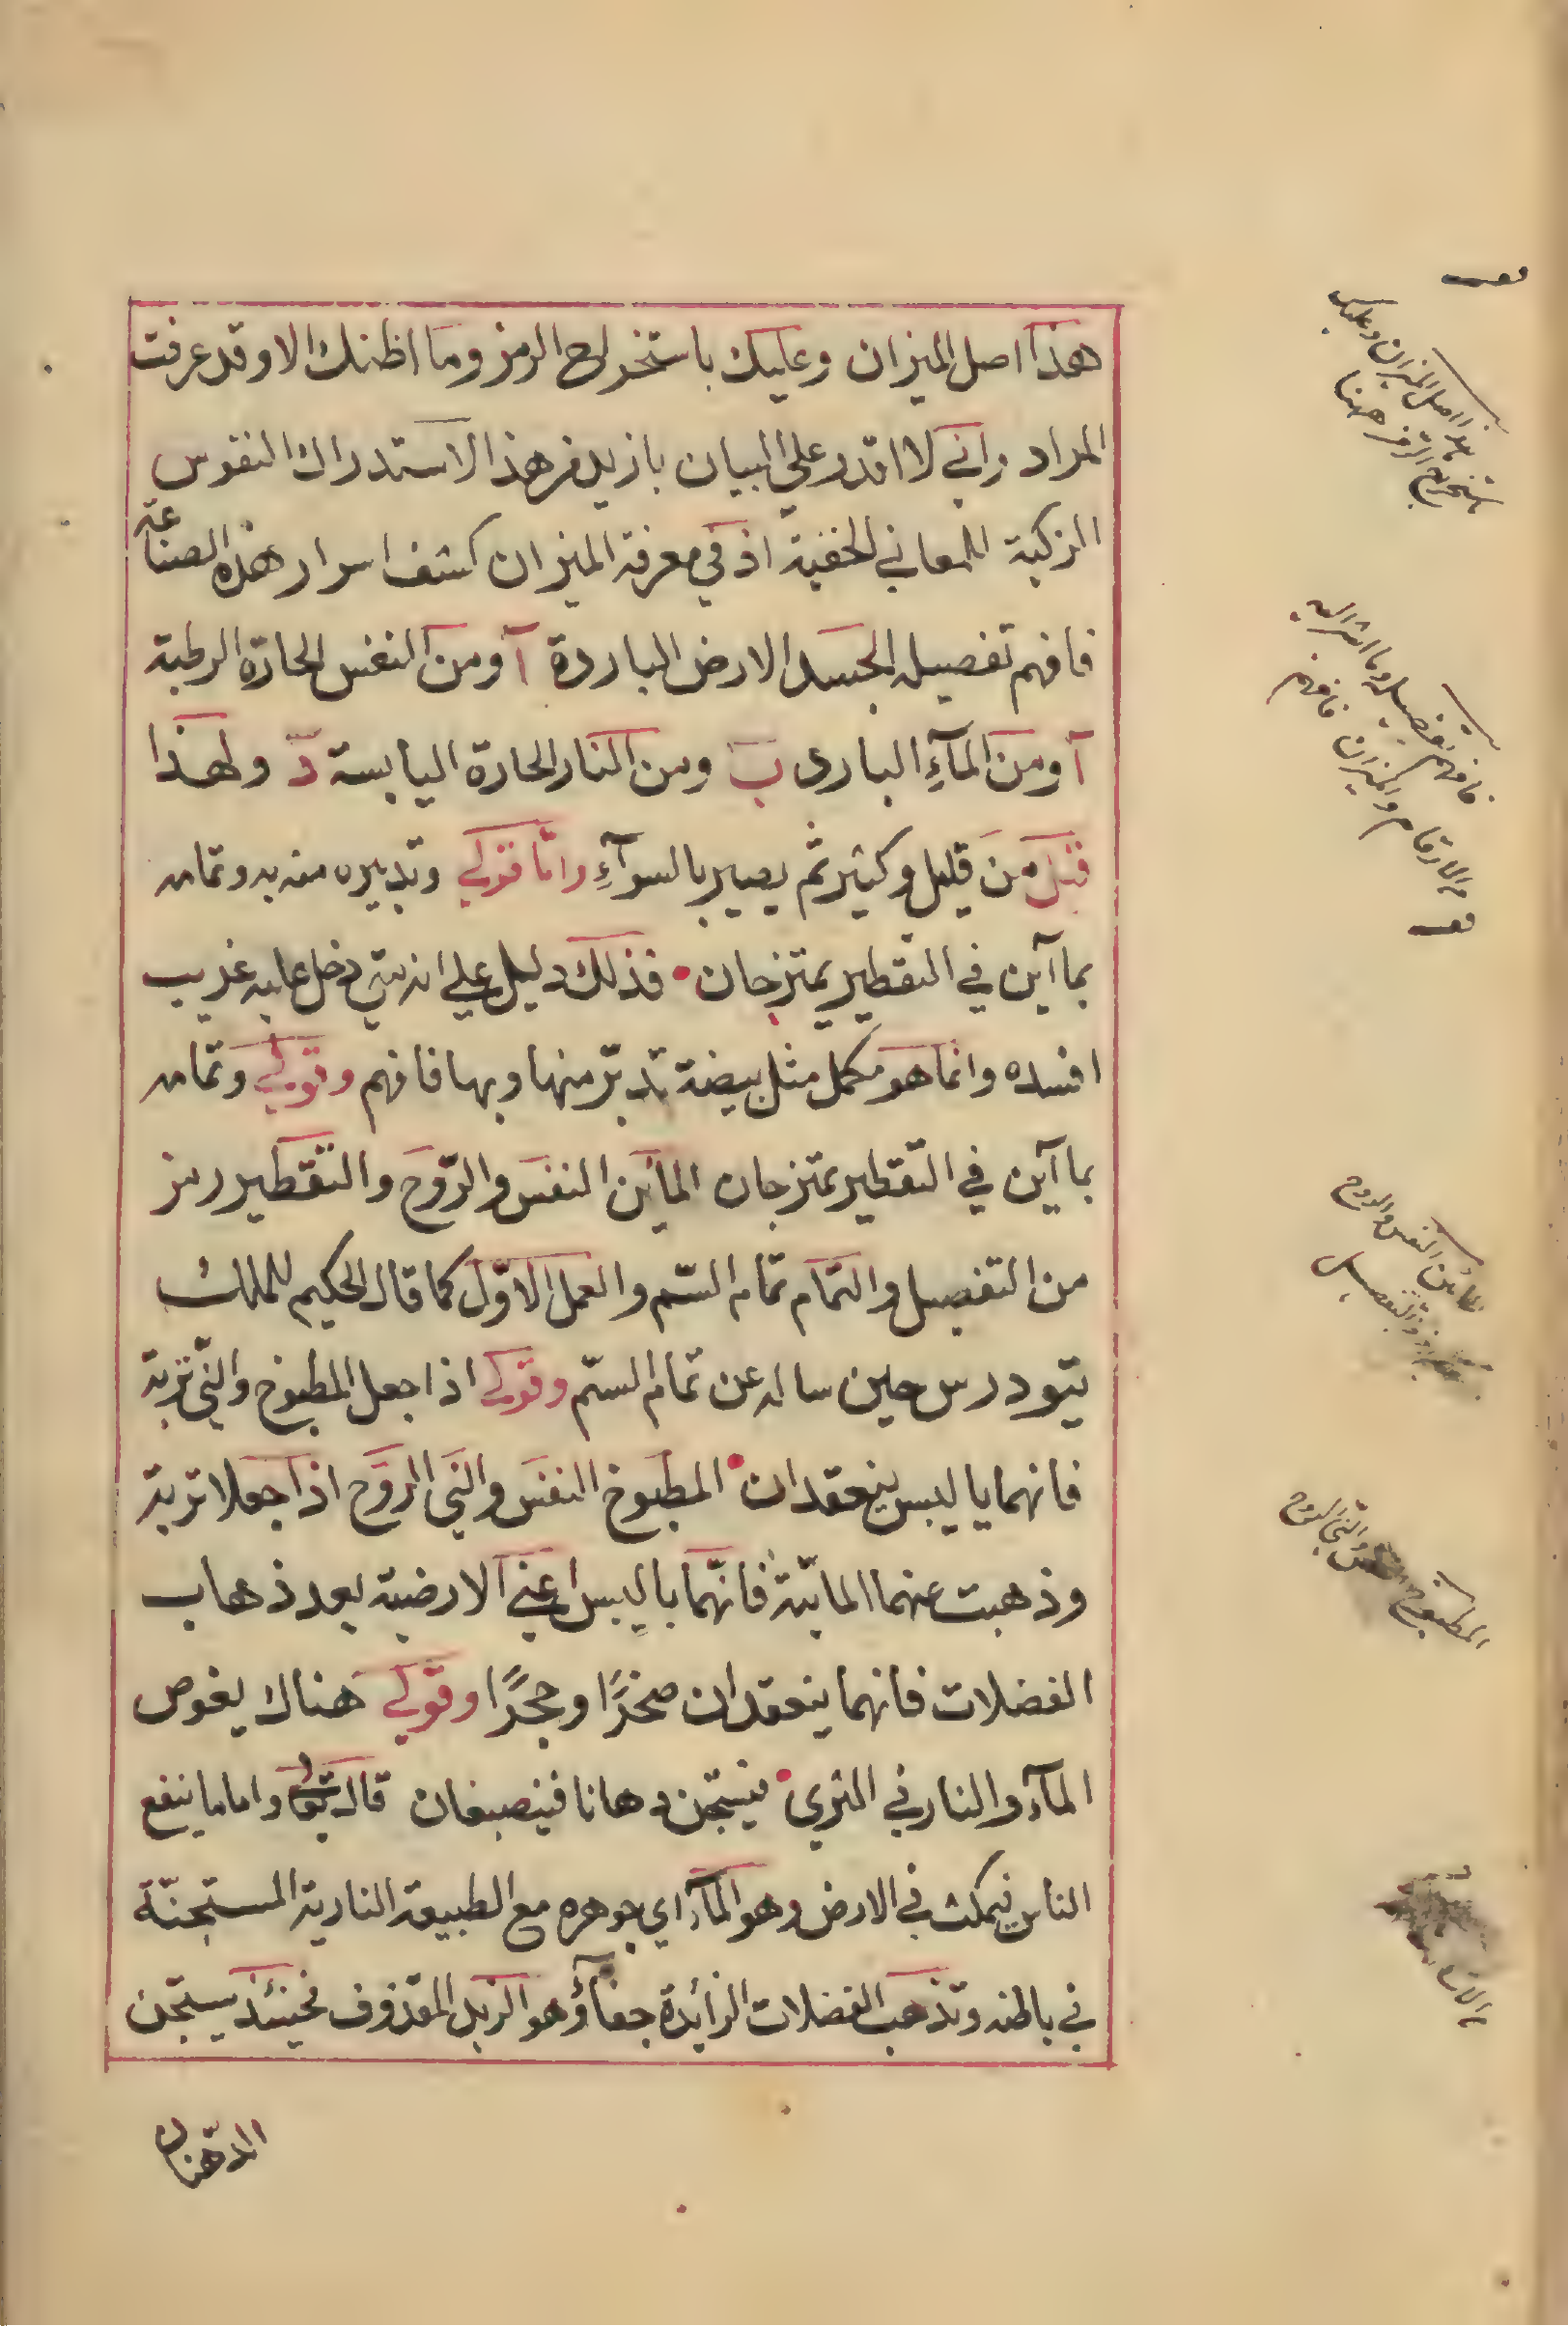 هذا اصل الميزان وعليك باستخراج الرمز وما اظنك الا وقد عرفت
المراد واني لا اقدر علي البيان بازيد من هذا لاستدراك النفوس
الزكية للمعاني الخفية اذ في معرفة الميزان كشف اسرار هذه الصناعة
فافهم تفصيله الجسد الارض الباردة آ ومن النفس الحارة الرطبة
آ ومن المآءِ البارد ب ومن النار الحارة اليابسة د ولهذا
قيل من قليل وكثير ثم يصير بالسوآءِ واما قولي وتدبيره منه به وتمامه
بماآين في التقطير يمتزجان فذلك دليل علي انه متي دخل عليه غريب
افسده وانما هو مكمل مثل بيضة تدبّر منها وبها فافهم وقولي وتمامه
بماآين في التقطير يمتزجان المأين النفس والرّوح والتّقطير رمز
من التفصيل والتمام تمام السّم والعمل الاوّل كما قال الحكيم للملك
تيودرس حين ساله عن تمام السّم وقولي اذا جعل المطبوخ والنّي تربة
فانهما باليبس ينعقدان المطبوخ النفس والنّي الرّوح اذا جعلا تربة
وذهبت عنهما المائيّة فانّهما باليبس اعني الارضية بعد ذهاب
الفضلات فانهما ينعقدان صخرًا وحجرًا وقولي هناك يغوص
المآء والنار في الثري فيستجن دهانا فينصبغان قال تعا واما ما ينفع
الناس فيمكث في الارض وهو المآء اي جوهره مع الطبيعة النارية المستجنّة
في باطنه وتذهب الفضلات الزائدة جفآؤ هو الزبل المقذوف فحينئذ يستجن
الدهنان
هذا اصل الميزان وعليك
باستخراج الرمز ههنا
فافهم تفصيله وما اشرنا اليه
من الارقام والميزان فافهم
المائين النفس والروح
والتفصيل
المطبوخ النفس والني الروح